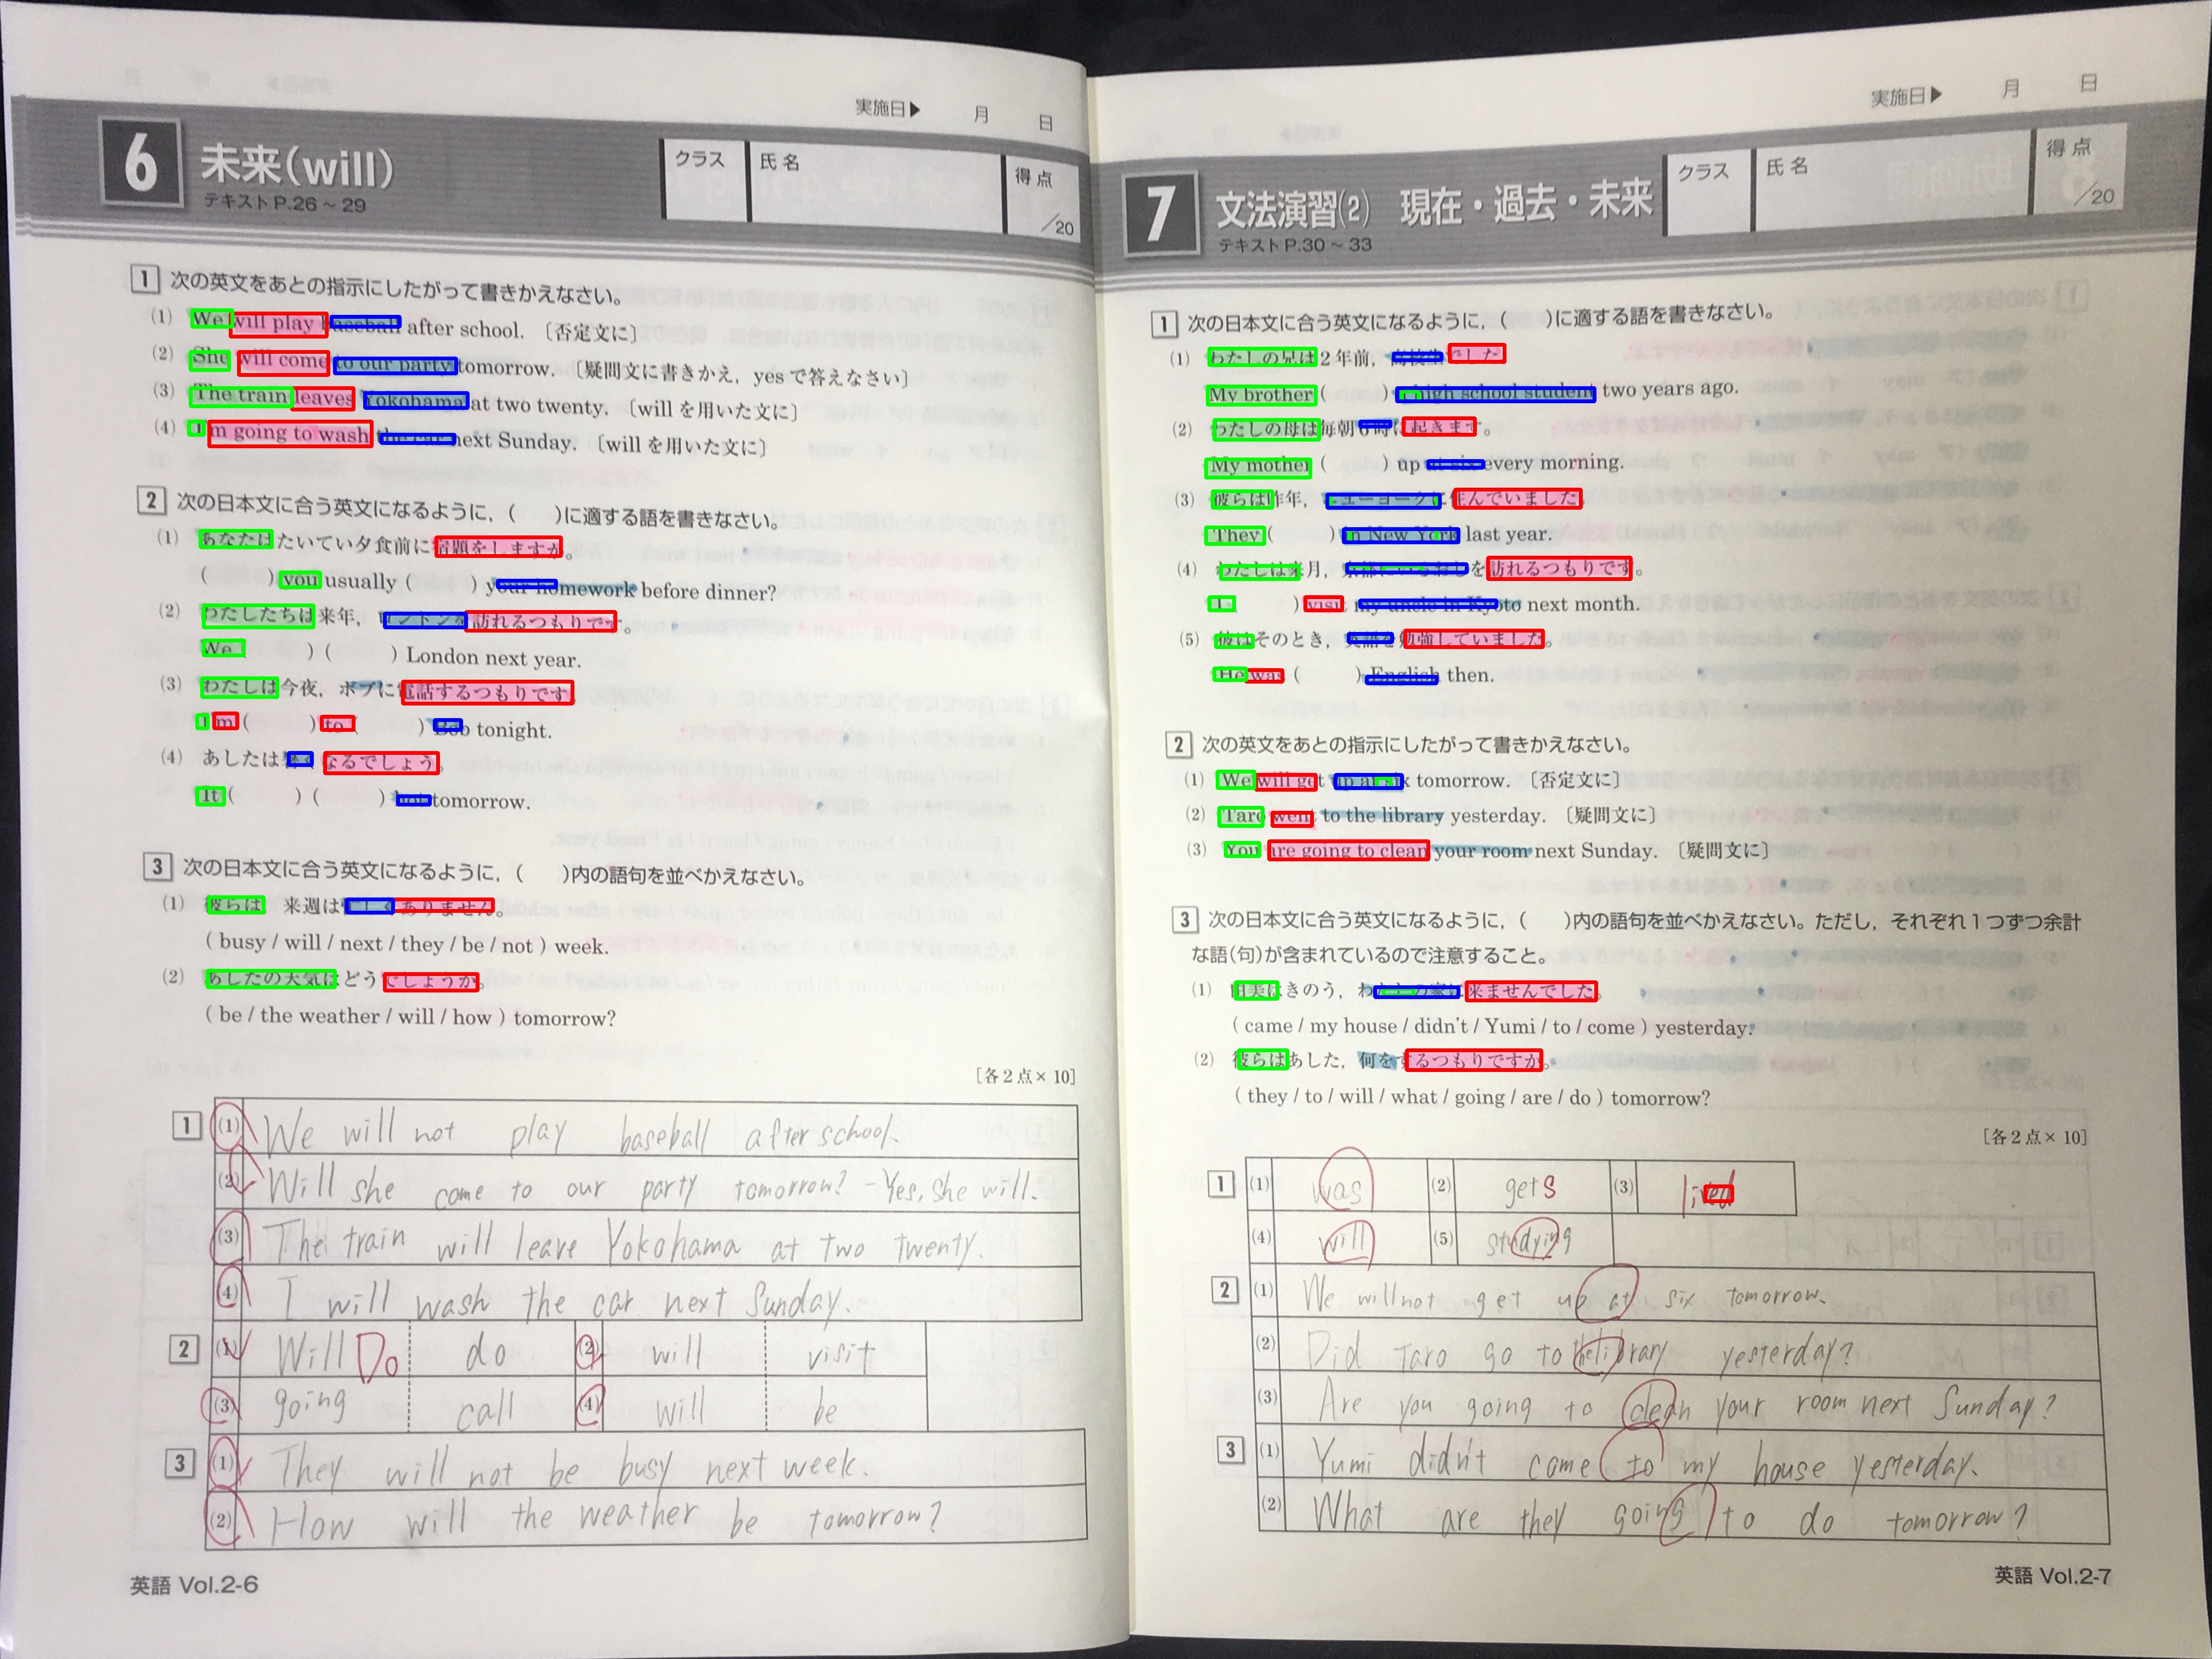 実施日▶ 月 日
6 未来(will)
テキストP.26～29
クラス 氏名 得点 /20
1 次の英文をあとの指示にしたがって書きかえなさい。
(1) We will play baseball after school. 〔否定文に〕
(2) She will come to our party tomorrow. 〔疑問文に書きかえ，yesで答えなさい〕
(3) The train leaves Yokohama at two twenty. 〔willを用いた文に〕
(4) I'm going to wash the car next Sunday. 〔willを用いた文に〕
2 次の日本文に合う英文になるように，( )に適する語を書きなさい。
(1) あなたはたいてい夕食前に宿題をしますか。
( ) you usually ( ) your homework before dinner?
(2) わたしたちは来年，ロンドンを訪れるつもりです。
We ( ) ( ) London next year.
(3) わたしは今夜，ボブに電話するつもりです。
I'm ( ) to ( ) Bob tonight.
(4) あしたは暑くなるでしょう。
It ( ) ( ) hot tomorrow.
3 次の日本文に合う英文になるように，( )内の語句を並べかえなさい。
(1) 彼らは 来週は忙しくありません。
( busy / will / next / they / be / not ) week.
(2) あしたの天気はどうでしょうか。
( be / the weather / will / how ) tomorrow?
[各2点×10]
1 (1) We will not play baseball after school.
(2) Will she come to our party tomorrow? -Yes, she will.
(3) The train will leave Yokohama at two twenty.
(4) I will wash the car next Sunday.
2 (1) Will Do do (2) will visit
(3) going call (4) will be
3 (1) They will not be busy next week.
(2) How will the weather be tomorrow?
英語 Vol.2-6
実施日▶ 月 日
7 文法演習(2) 現在・過去・未来
テキストP.30～33
クラス 氏名 得点 /20
1 次の日本文に合う英文になるように，( )に適する語を書きなさい。
(1) わたしの兄は2年前，高校生でした
My brother ( ) a high school student two years ago.
(2) わたしの母は毎朝6時に起きます。
My mother ( ) up at six every morning.
(3) 彼らは昨年，ニューヨークに住んでいました
They ( ) in New York last year.
(4) わたしは来月，京都にいるおじを訪れるつもりです。
I ) visit my uncle in Kyoto next month.
(5) 彼はそのとき，英語を勉強していました。
He was ( ) English then.
2 次の英文をあとの指示にしたがって書きかえなさい。
(1) We will get up at six tomorrow. 〔否定文に〕
(2) Taro went to the library yesterday. 〔疑問文に〕
(3) You are going to clean your room next Sunday. 〔疑問文に〕
3 次の日本文に合う英文になるように，( )内の語句を並べかえなさい。ただし，それぞれ1つずつ余計
な語(句)が含まれているので注意すること。
(1) 由美はきのう，わたしの家に来ませんでした。
( came / my house / didn't / Yumi / to / come ) yesterday.
(2) 彼らはあした，何をするつもりですか。
( they / to / will / what / going / are / do ) tomorrow?
[各2点×10]
1 (1) was (2) gets (3) lived
(4) will (5) studying
2 (1) We will not get up at six tomorrow.
(2) Did Taro go to the library yesterday?
(3) Are you going to clean your room next Sunday?
3 (1) Yumi didn't come to my house yesterday.
(2) What are they going to do tomorrow?
英語 Vol.2-7